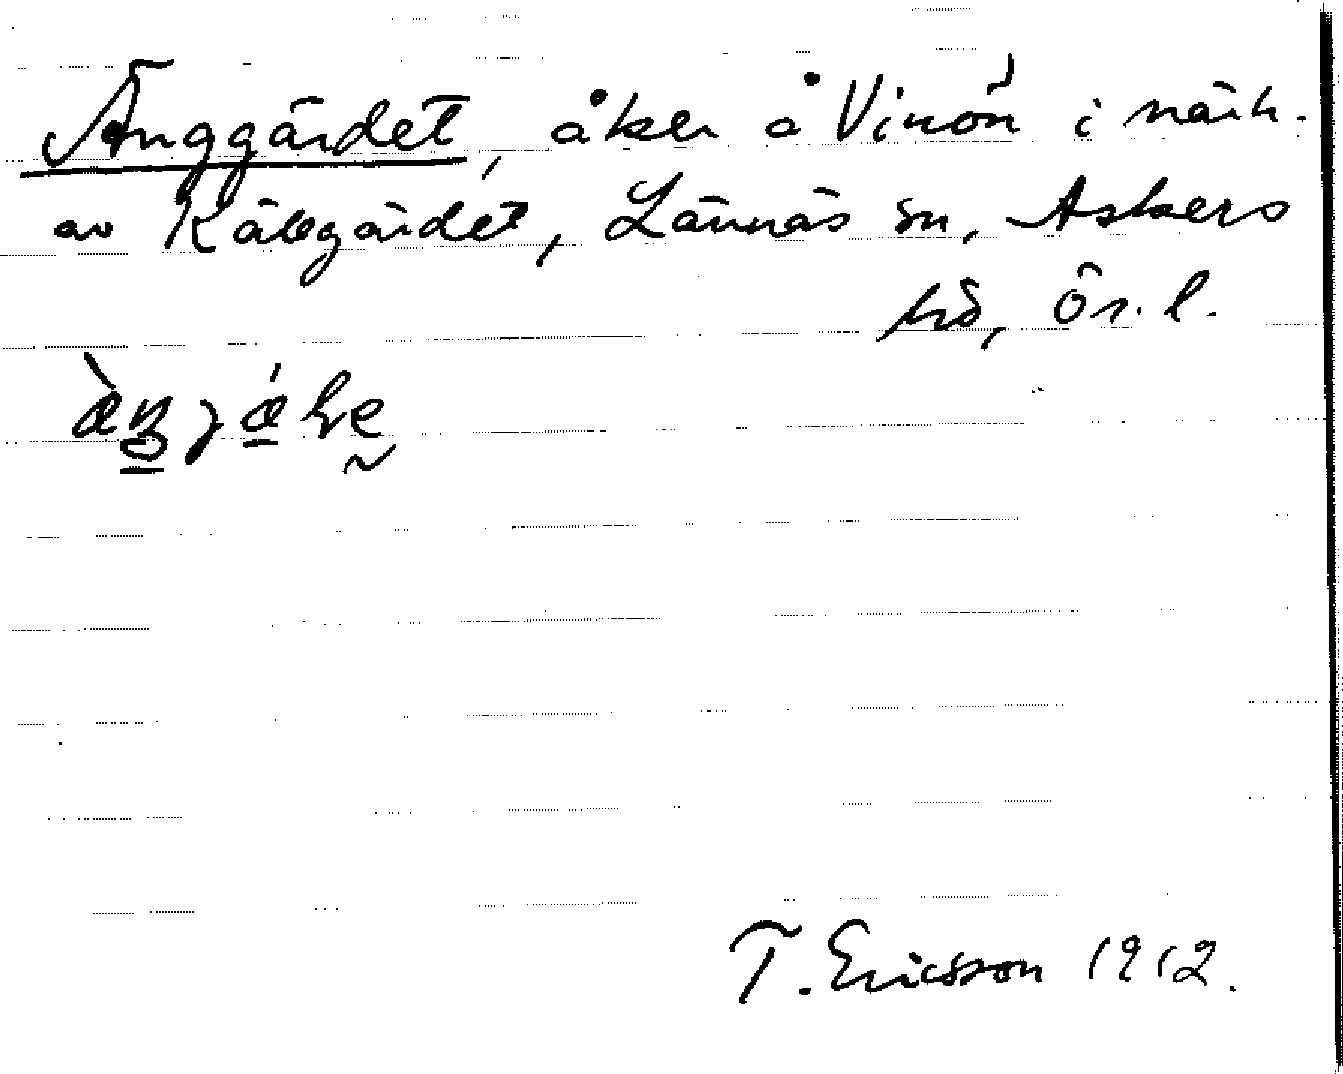 Änggärdet, åker å Vinön i närh.
av Källgärdet, Lännäs sn, Askers
hd, Ör. l.
T. Ericsson 1912.